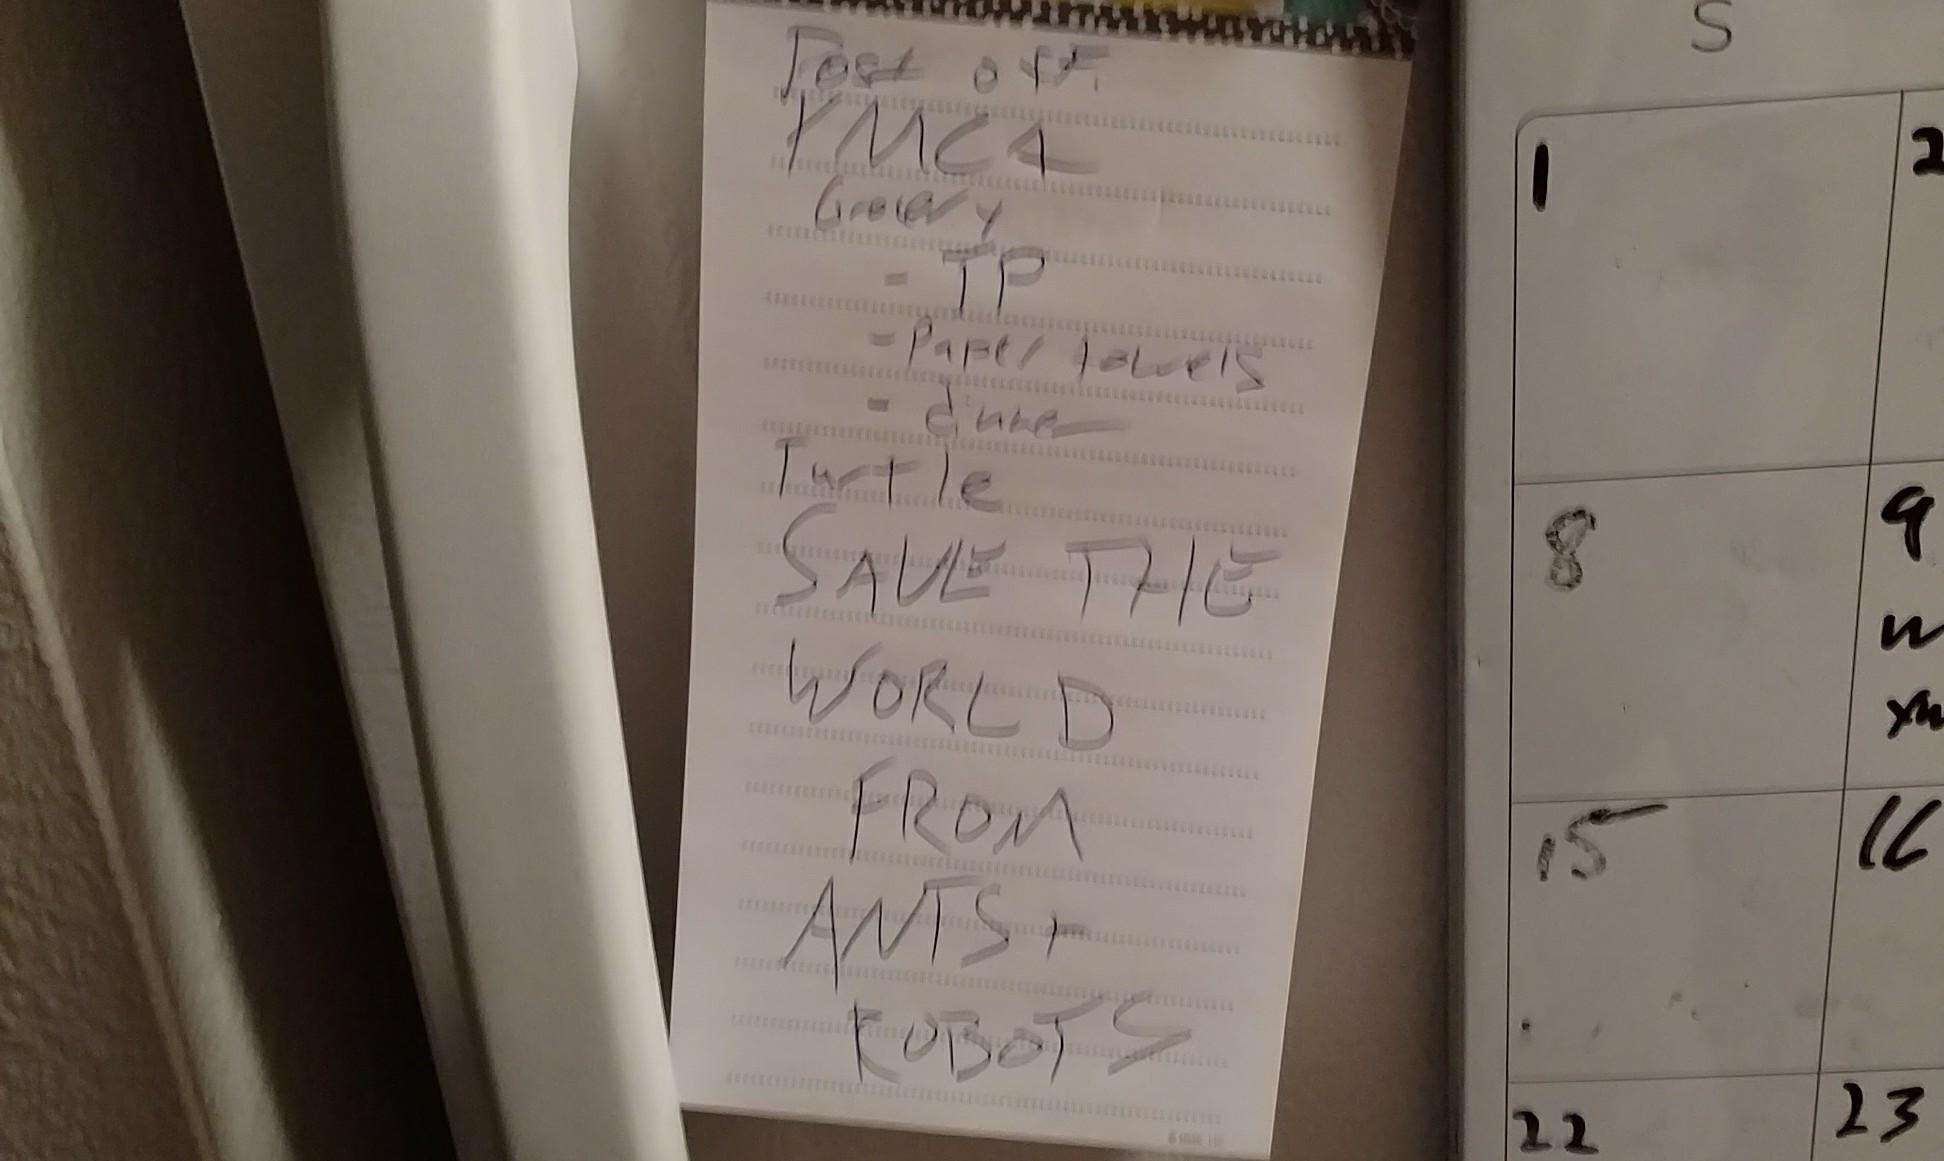 Post off.
YMCA
Grocery
- TP
- Paper towels
- dinner
Turtle
SAVE THE
WORLD
FROM
ANTS +
ROBOTS
S
1
2
8
9
15
16
22
23